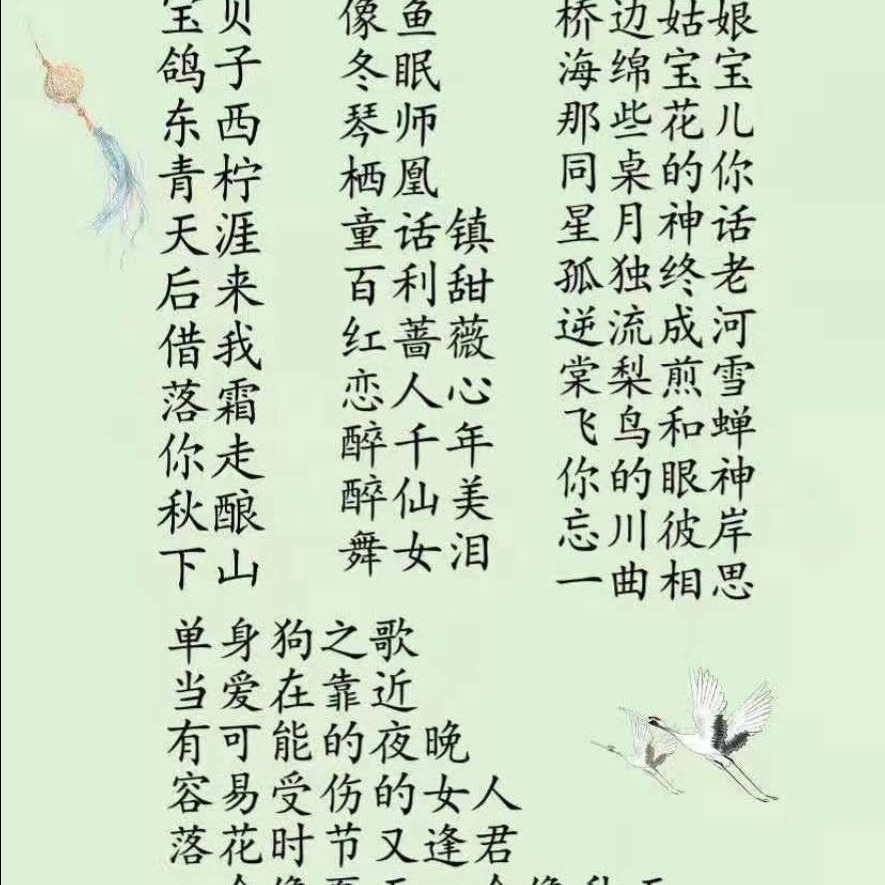 宝贝
鸽子
东西
青柠
天涯
后来
借我
落霜
你走
秋酿
下山
像鱼
冬眠
琴师
栖凰
童话镇
百利甜
红蔷薇
恋人心
醉千年
醉仙美
舞女泪
桥边姑娘
海绵宝宝
那些花儿
同桌的你
星月神话
孤独终老
逆流成河
棠梨煎雪
飞鸟和蝉
你的眼神
忘川彼岸
一曲相思
单身狗之歌
当爱在靠近
有可能的夜晚
容易受伤的女人
落花时节又逢君